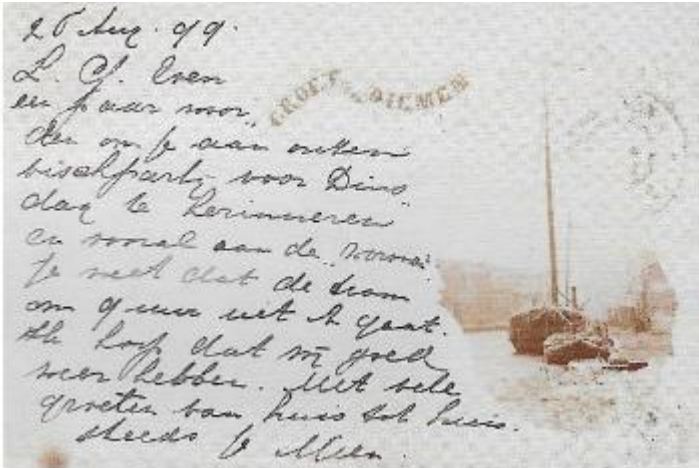 26 Aug. 99.
GROET DIEMEN
L. Even
een paar woor„
den om je aan onzen
vischpartij voor Dins„
dag te herinneren
en vooral aan de
Je weet dat de tram
om 9 uur uit A gaat.
Ik hoop dat wij goed
weer hebben. Met vele
groeten van huis tot huis.
steeds je Mien.